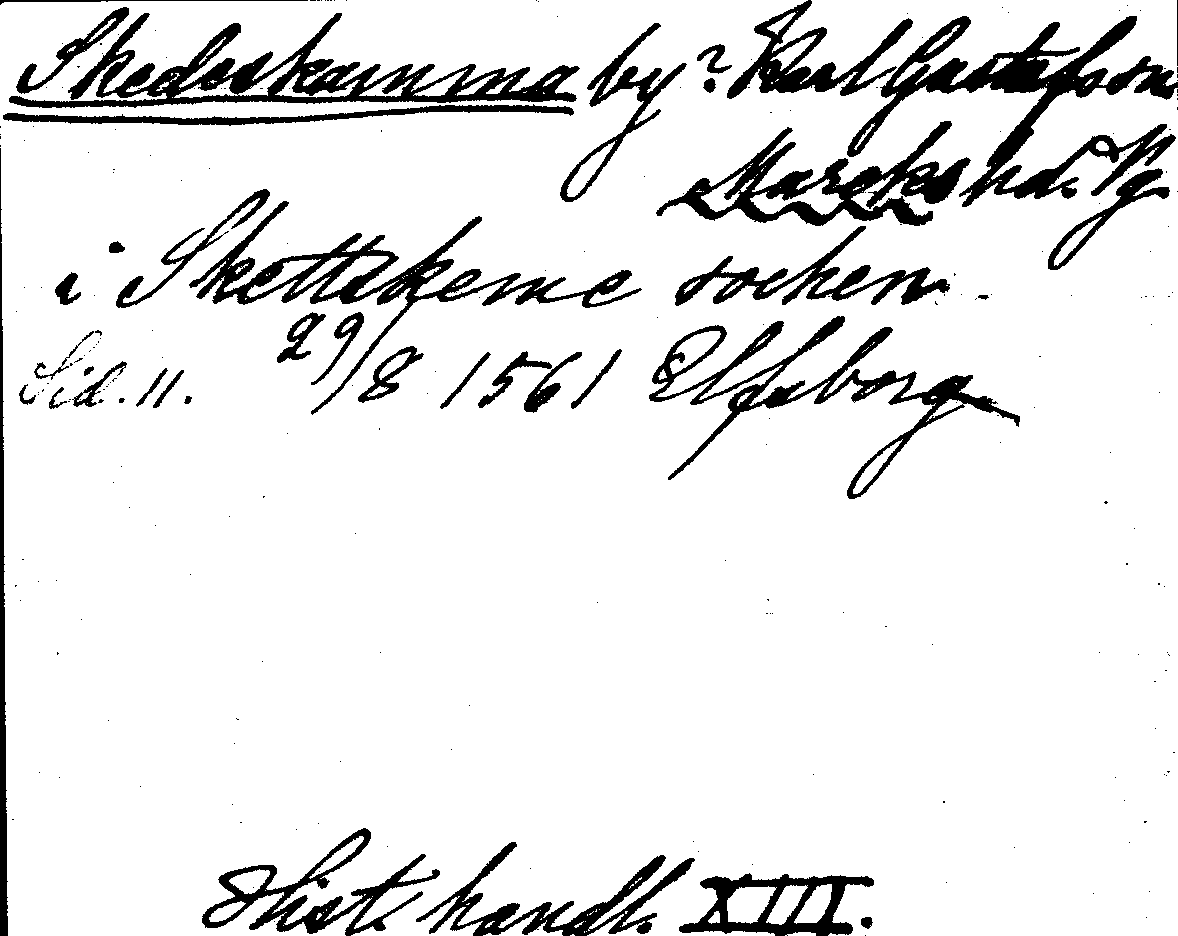 Skedeskamma by? Karl Gustafsson
Marcks hd. Vg.
i Skettskeme socken.
Sid. 11. 29/8 1561 Elfsborg.
Hist. handl. XIII.